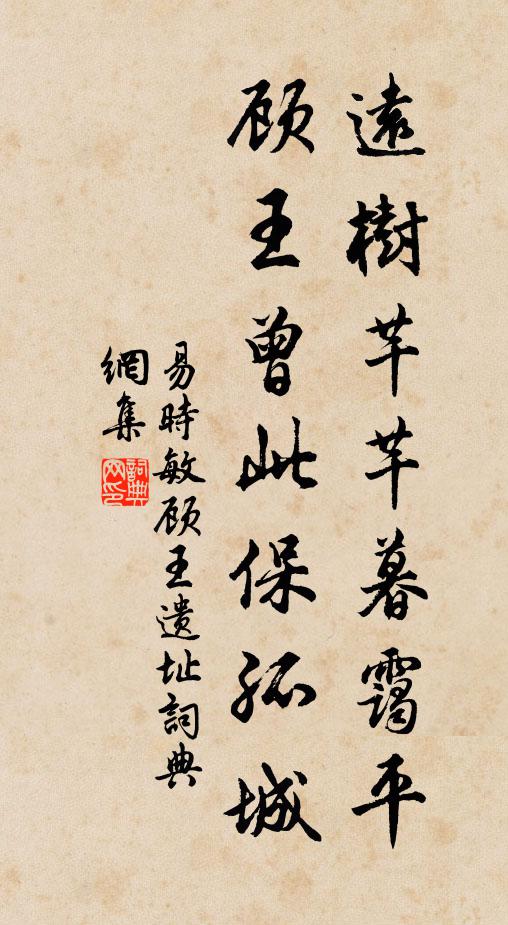 遠樹芊芊暮靄平
顾王曾此保孤城
易時敏顾王遺址詞典
網集
詞典網印